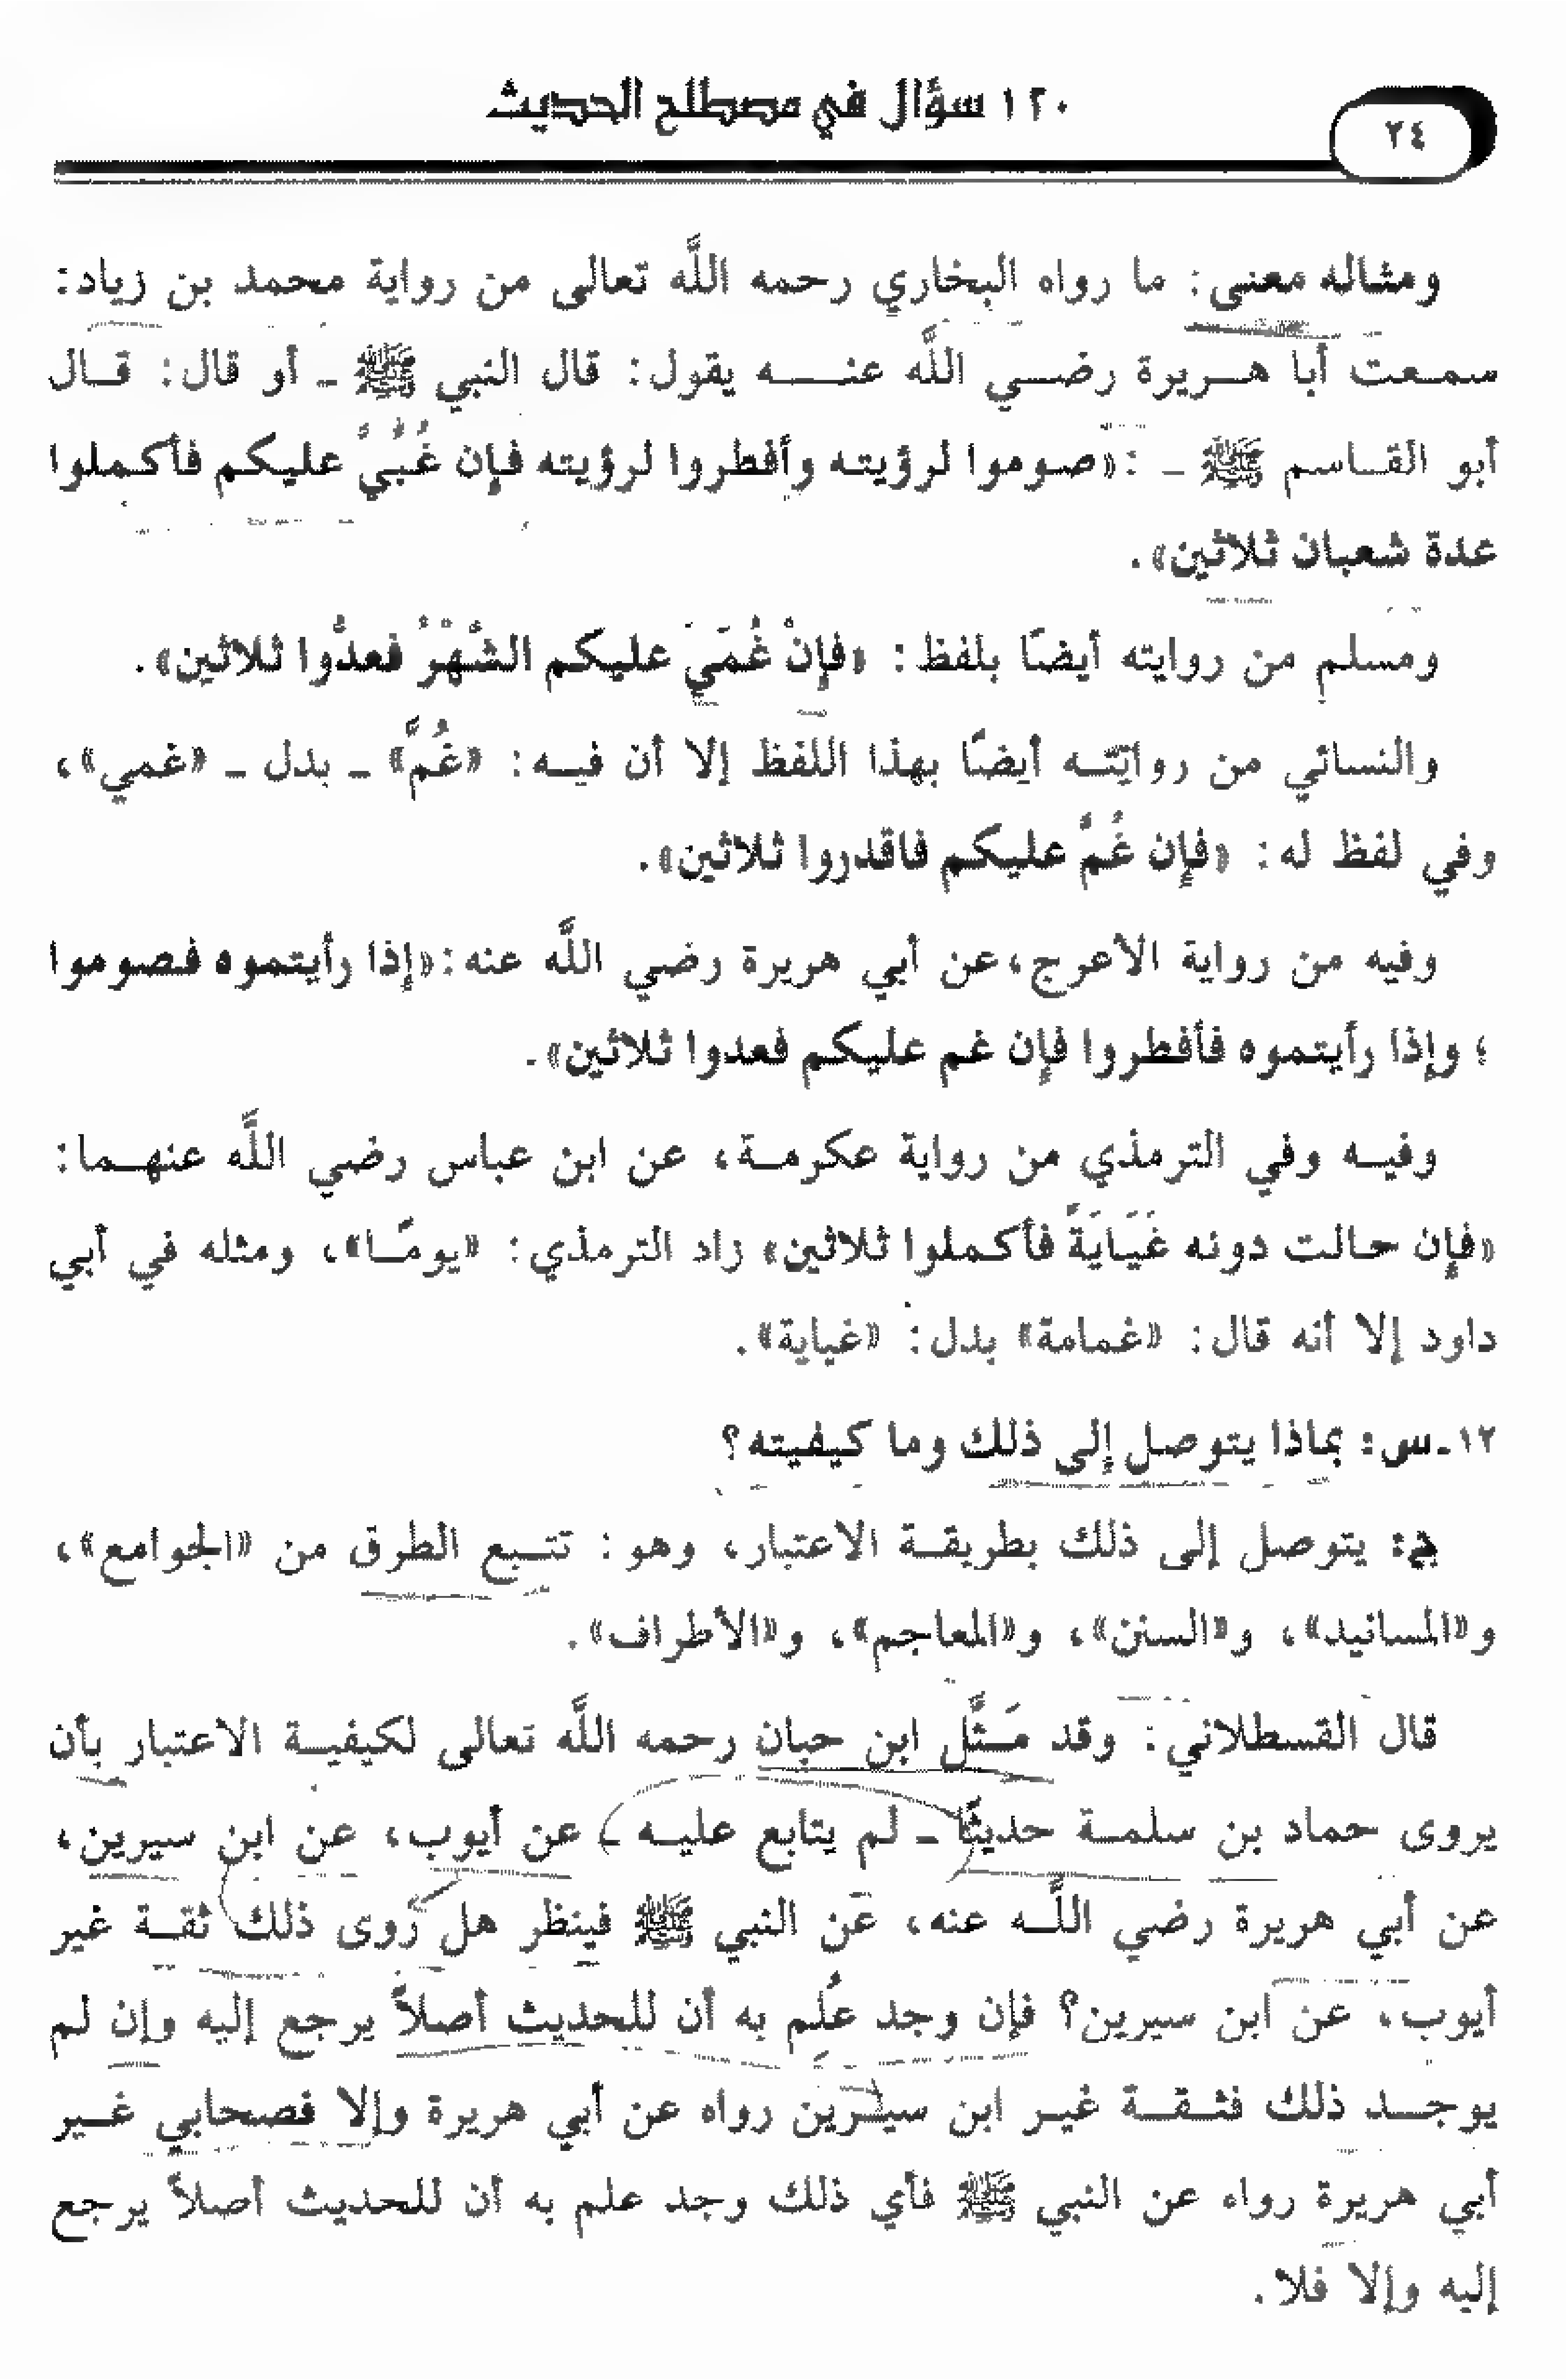 ١٢٠ سؤال في مصطلح الحديث
٢٤
ومثاله معنى: ما رواه البخاري رحمه اللَّه تعالى من رواية محمد بن زياد:
سمعت أبا هريرة رضي اللَّه عنه يقول: قال النبي ﷺ - أو قال: قال
أبو القاسم ﷺ - : «صوموا لرؤيته وأفطروا لرؤيته فإن غُبِّيَ عليكم فأكملوا
عدة شعبان ثلاثين».
ومسلم من روايته أيضًا بلفظ: «فإنْ غُمِّيَ عليكم الشَّهْرُ فعدُّوا ثلاثين».
والنسائي من روايته أيضًا بهذا اللفظ إلا أن فيه: «غُمَّ» - بدل - «غمي»،
وفي لفظ له: «فإن غُمَّ عليكم فاقدروا ثلاثين».
وفيه من رواية الأعرج، عن أبي هريرة رضي اللَّه عنه: «إذا رأيتموه فصوموا
؛ وإذا رأيتموه فأفطروا فإن غم عليكم فعدوا ثلاثين».
وفيه وفي الترمذي من رواية عكرمة، عن ابن عباس رضي اللَّه عنهما:
«فإن حالت دونه غَيَايَةً فأكملوا ثلاثين» زاد الترمذي: «يومًا»، ومثله في أبي
داود إلا أنه قال: «غمامة» بدل: «غياية».
١٢-س: بماذا يتوصل إلى ذلك وما كيفيته؟
ج: يتوصل إلى ذلك بطريقة الاعتبار، وهو: تتبع الطرق من «الجوامع»،
و«المسانيد»، و«السنن»، و«المعاجم»، و«الأطراف».
قال القسطلاني: وقد مَثَّل ابن حبان رحمه اللَّه تعالى لكيفية الاعتبار بأن
يروى حماد بن سلمة حديثًا - لم يتابع عليه - عن أيوب، عن ابن سيرين،
عن أبي هريرة رضي اللَّه عنه، عن النبي ﷺ فينظر هل روى ذلك ثقة غير
أيوب، عن ابن سيرين؟ فإن وجد عُلِم به أن للحديث أصلاً يرجع إليه وإن لم
يوجد ذلك فثقة غير ابن سيرين رواه عن أبي هريرة وإلا فصحابي غير
أبي هريرة رواه عن النبي ﷺ فأي ذلك وجد علم به أن للحديث أصلاً يرجع
إليه وإلا فلا.